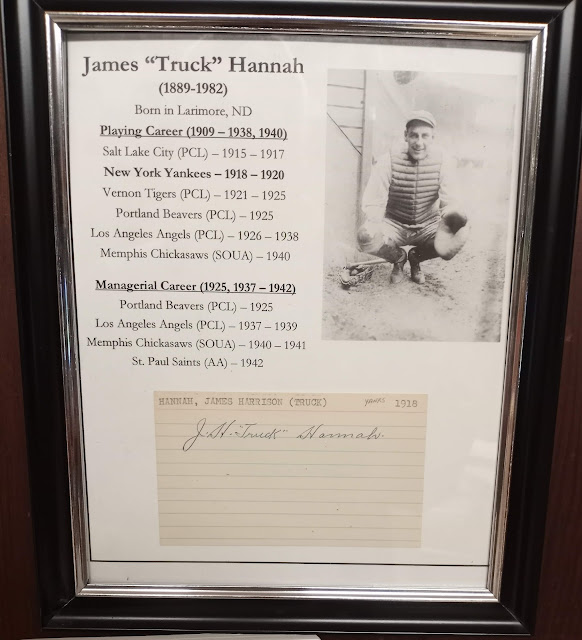 James “Truck” Hannah
(1889-1982)
Born in Larimore, ND
Playing Career (1909 – 1938, 1940)
Salt Lake City (PCL) – 1915 – 1917
New York Yankees – 1918 – 1920
Vernon Tigers (PCL) – 1921 – 1925
Portland Beavers (PCL) – 1925
Los Angeles Angels (PCL) – 1926 – 1938
Memphis Chickasaws (SOUA) – 1940
Managerial Career (1925, 1937 – 1942)
Portland Beavers (PCL) – 1925
Los Angeles Angels (PCL) – 1937 – 1939
Memphis Chickasaws (SOUA) – 1940 – 1941
St. Paul Saints (AA) – 1942
HANNAH, JAMES HARRISON (TRUCK) YANKS 1918
J. H. "Truck" Hannah.